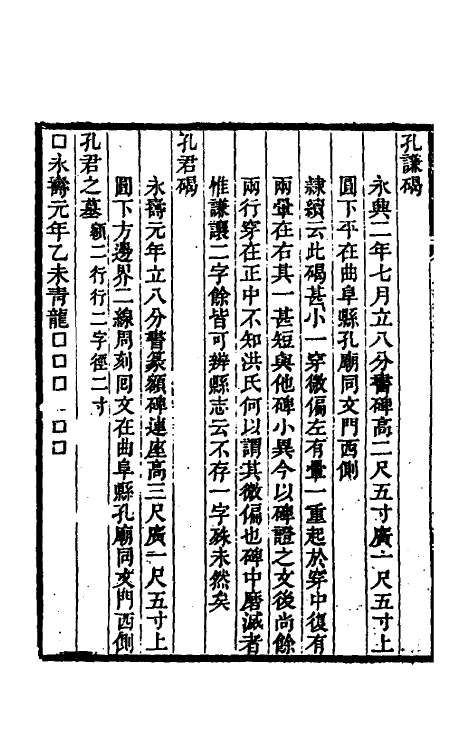 孔謙碣
永興二年七月立八分書碑高二尺五寸廣一尺五寸上
圓下平在曲阜縣孔廟同文門西側
隸續云此碣甚小一穿微偏左有暈一重起於穿中復有
兩暈在右其一甚短與他碑小異今以碑證之文後尚餘
兩行穿在正中不知洪氏何以謂其微偏也碑中磨滅者
惟謙讓二字餘皆可辨縣志云不存一字殊未然矣
孔君碣
永壽元年立八分書篆額碑連座高三尺廣一尺五寸上
圓下方邊界二線周刻囘文在曲阜縣孔廟同文門西側
孔君之墓額二行行二字徑二寸
□永壽元年乙未青龍□□□□□